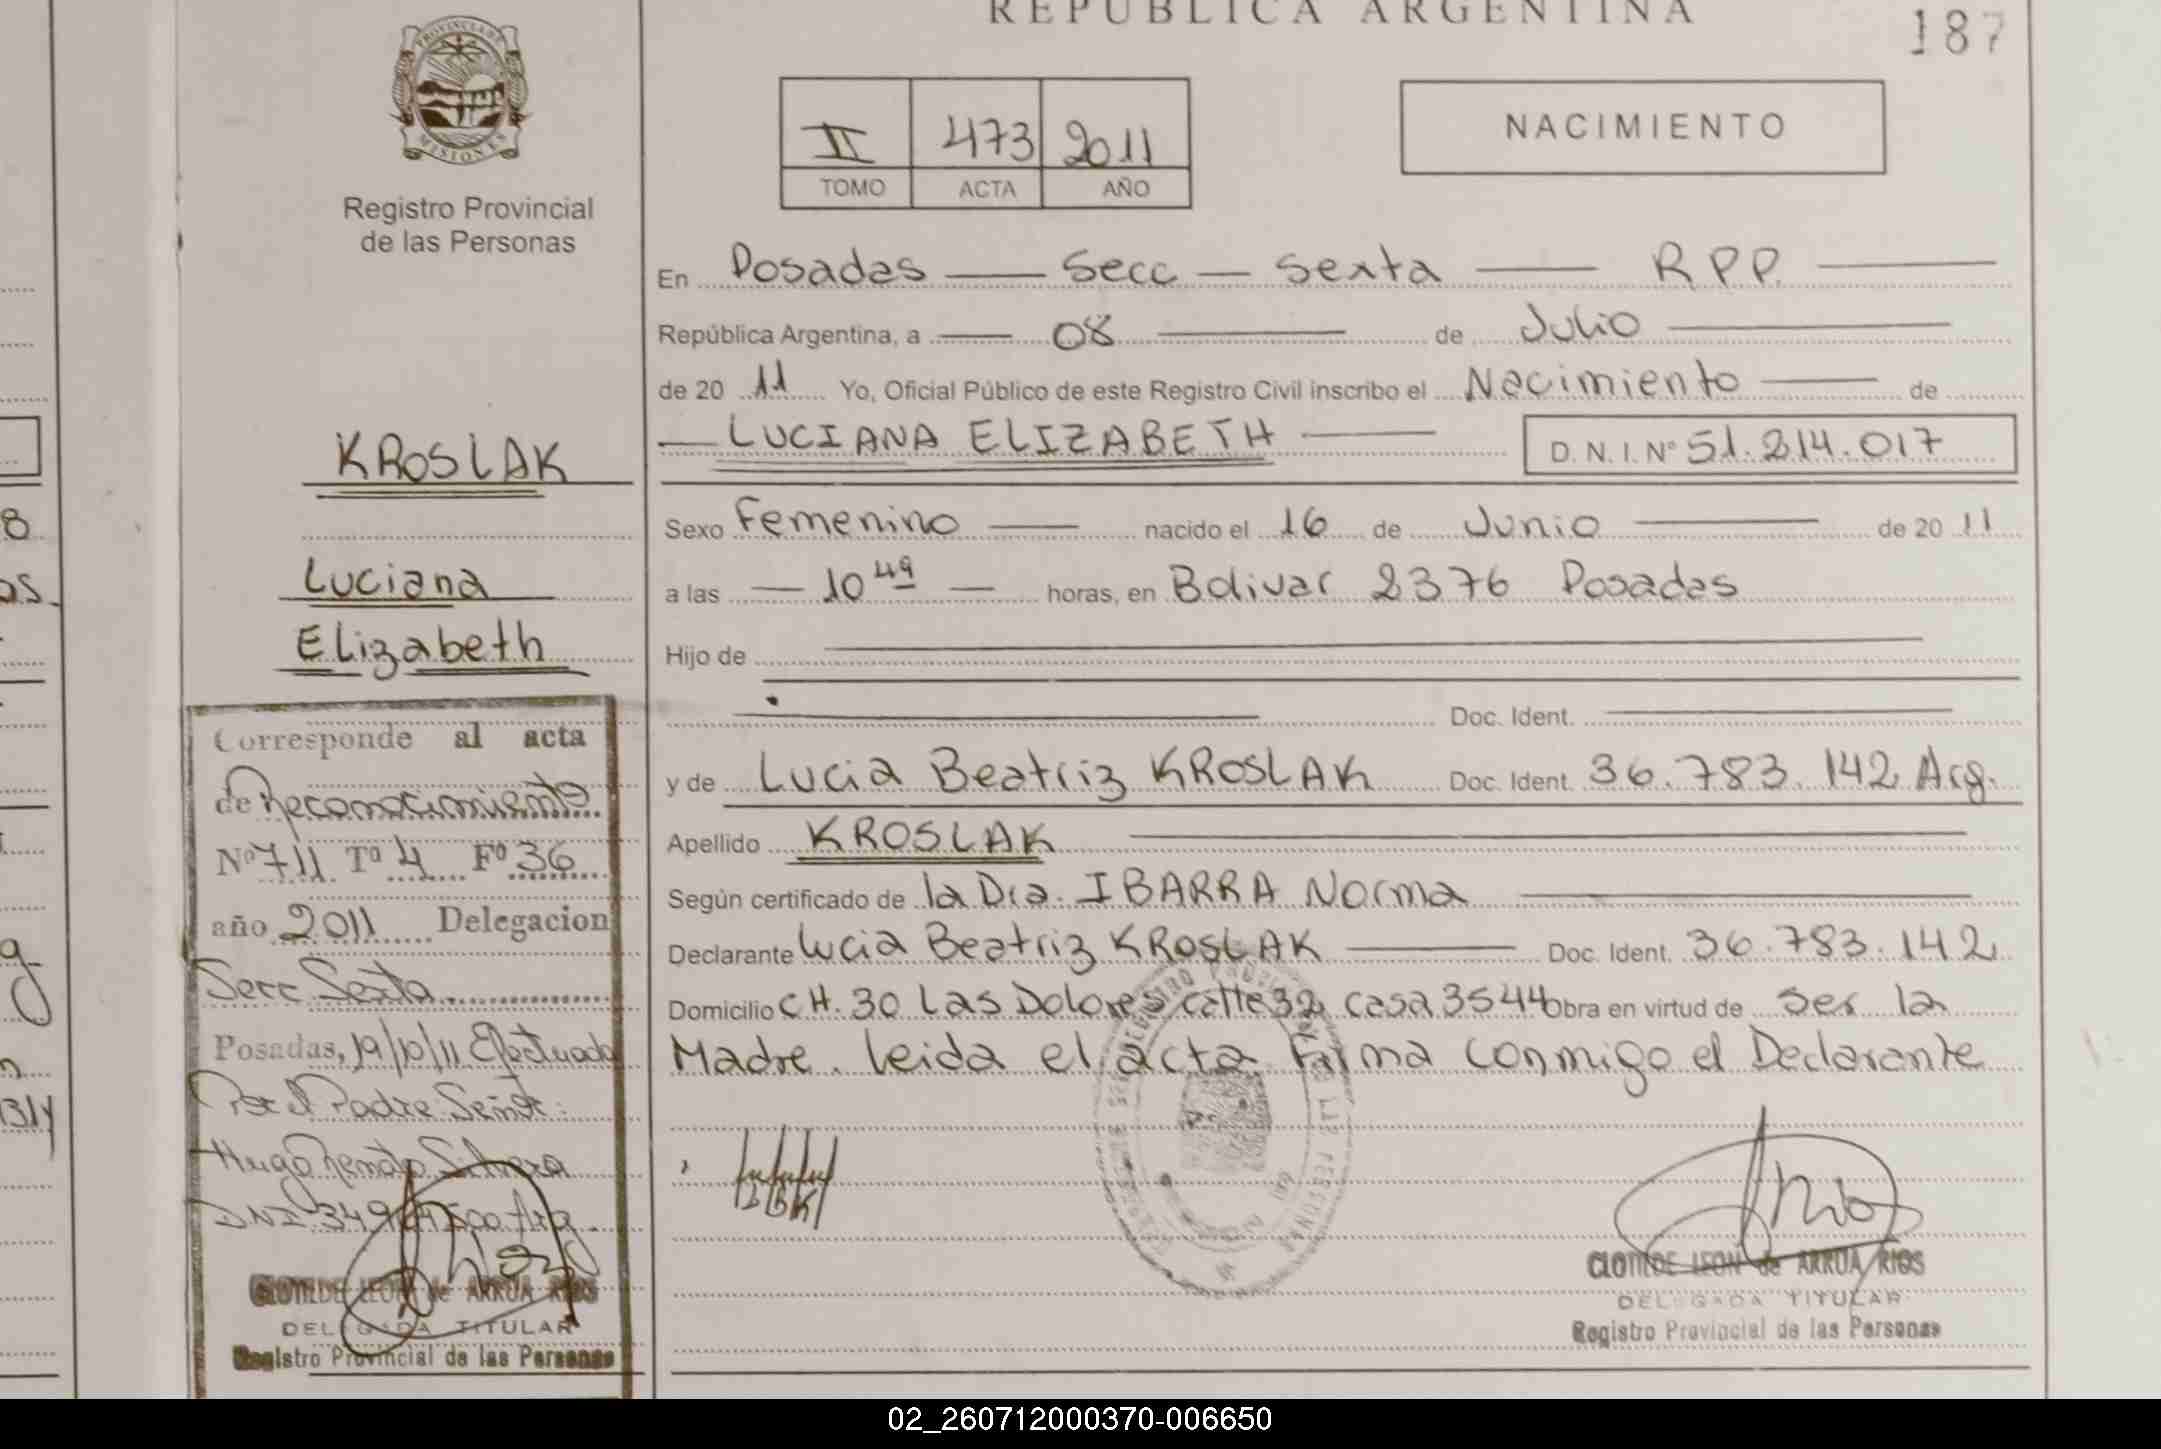 REPUBLICA ARGENTINA
187
PROVINCIA DE
MISIONES
Registro Provincial
de las Personas
II 473 2011
TOMO ACTA AÑO
NACIMIENTO
En Posadas Secc Sexta R.P.P.
República Argentina, a 08 de Julio
de 20 11 Yo, Oficial Público de este Registro Civil inscribo el Nacimiento de
LUCIANA ELIZABETH D.N.I. Nº 51.214.017
Sexo Femenino nacido el 16 de Junio de 20 11
a las 10 49 horas, en Bolivar 2376 Posadas
Hijo de
Doc. Ident.
y de Lucia Beatriz KROSLAK Doc. Ident. 36.783.142 Arg.
Apellido KROSLAK
Según certificado de la Dra. IBARRA Norma
Declarante Lucia Beatriz KROSLAK Doc. Ident. 36.783.142
Domicilio CH. 30 Las Dolores calle 32 casa 3544 Obra en virtud de ser la
Madre. leida el acta firma conmigo el Declarante
LBK
CLOTILDE LEON de ARRUA RIOS
DELEGADA TITULAR
Registro Provincial de las Personas
KROSLAK
Luciana
Elizabeth
Corresponde al acta
de Reconocimiento
Nº 711 Tº 4 Fº 36
año 2011 Delegacion
Secc Sexta
Posadas, 19/10/11 Efectuado
Por el Padre Señor:
Hugo Renato
DNI Arg.
CLOTILDE LEON de ARRUA RIOS
DELEGADA TITULAR
Registro Provincial de las Personas
02_260712000370-006650